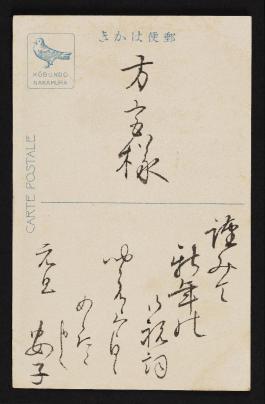 郵便はかき
KŌBUNDO
NAKAMURA
CARTE POSTALE
方宮様
謹みて
新年の
御祝詞
申あげ
めでたく
かしく
元旦
安子